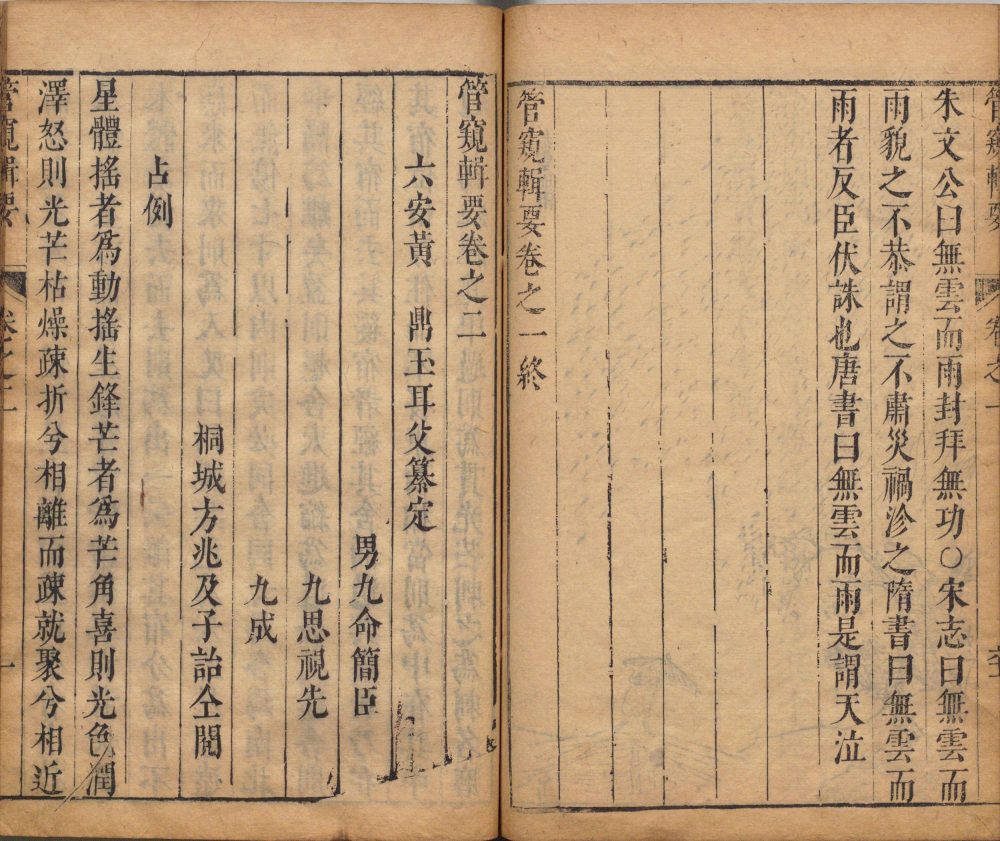 管窺輯要
卷之一
朱文公曰無雲而雨封拜無功○宋志曰無雲而
雨貌之不恭謂之不肅災禍沴之隋書曰無雲而
雨者反臣伏誅也唐書曰無雲而雨是謂天泣
管窺輯要卷之一終
管窺輯要卷之二
六安黃 鼎玉耳父纂定
男九命簡臣
九思視先
九成
桐城方兆及子詒仝閱
占例
星體搖者為動搖生鋒芒者為芒角喜則光色潤
澤怒則光芒枯燥疎折兮相離而疎就聚兮相近
管窺輯要
卷之二
一